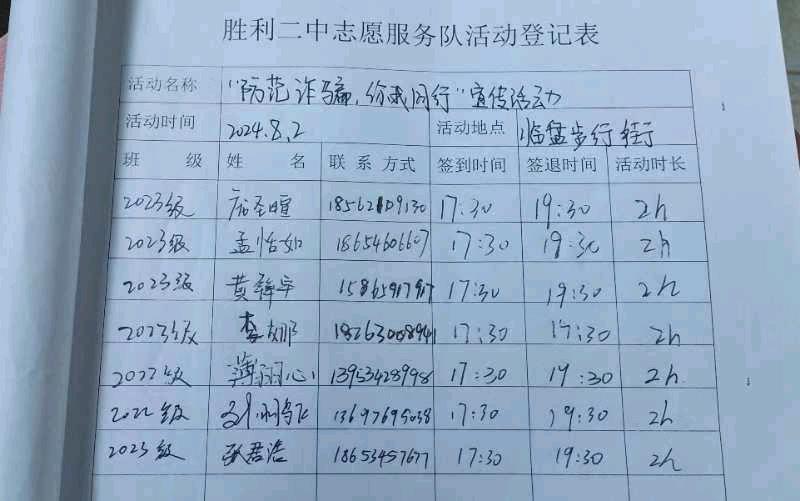 胜利二中志愿服务队活动登记表
活动名称 "防范诈骗，你我同行"宣传活动
活动时间 2024.8.2 活动地点 临盘步行街
班级 姓名 联系方式 签到时间 签退时间 活动时长
2023级 18562109130 17:30 19:30 2h
2023级 孟怡如 18654606607 17:30 19:30 2h
2023级 黄 17:30 19:30 2h
2023级 李 18263008941 17:30 17:30 2h
2022级 薄 心 13953428998 17:30 19:30 2h
2022级 刘 飞 13697695038 17:30 19:30 2h
2023级 张君浩 18653457677 17:30 19:30 2h